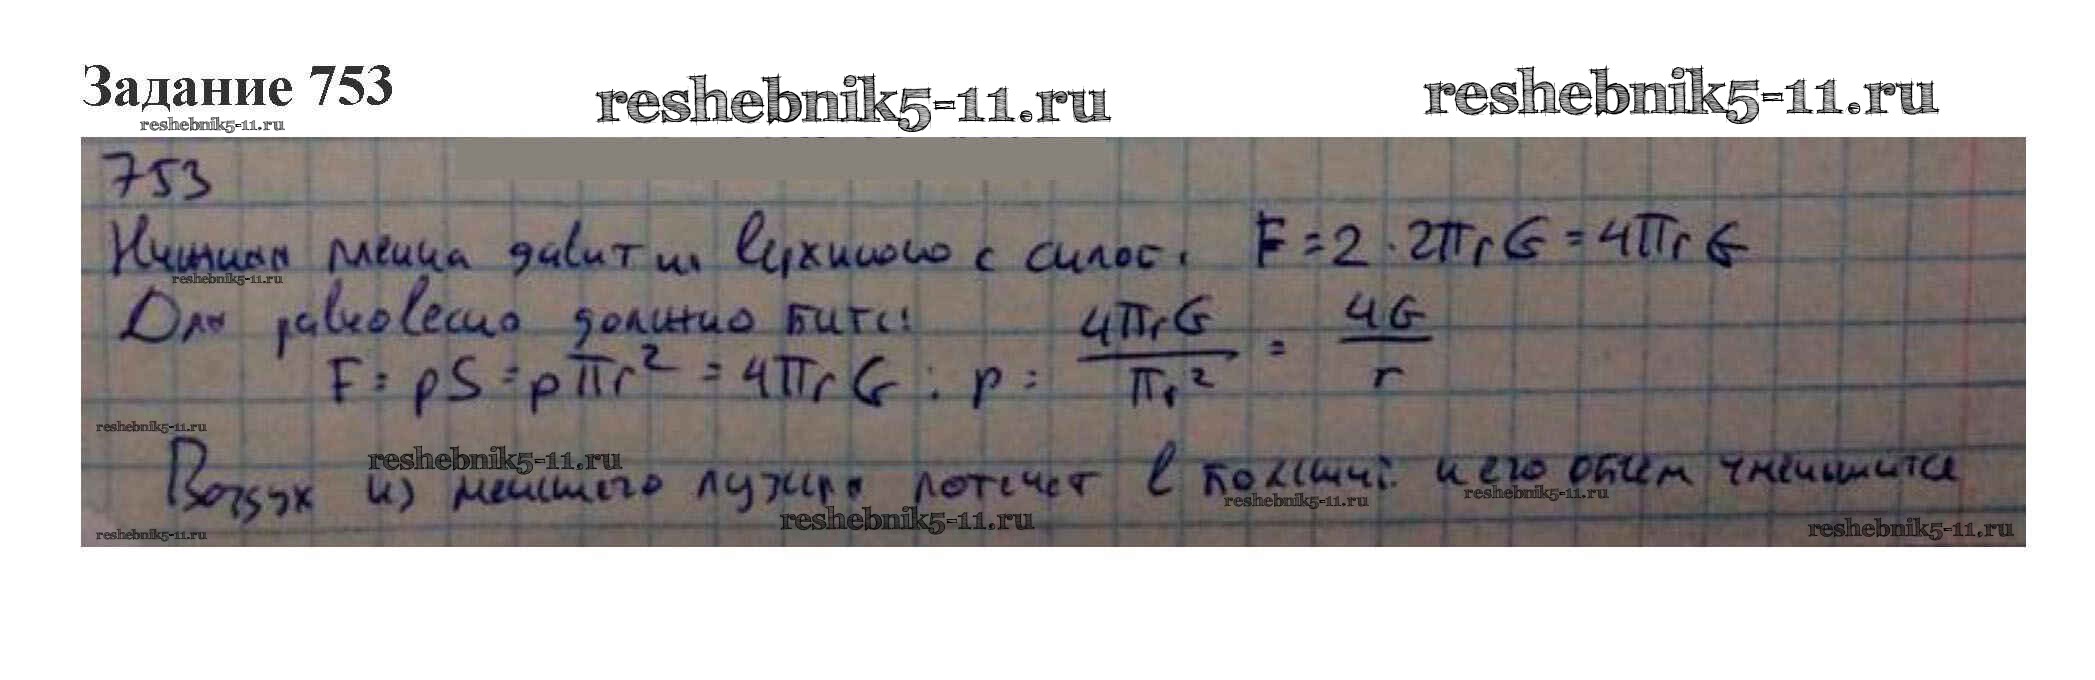 Задание 753
reshebnik5-11.ru
reshebnik5-11.ru
reshebnik5-11.ru
753
Нижняя пленка давит на верхнюю с силой F = 2 · 2πrG = 4πrG
reshebnik5-11.ru
Для равновесия должно бить:
F = pS = pπr² = 4πrG ; p = 4πrG / πr² = 4G / r
reshebnik5-11.ru
reshebnik5-11.ru
Воздух из меньшего пузыря потечет в больший и его объем уменьшится
reshebnik5-11.ru
reshebnik5-11.ru
reshebnik5-11.ru
reshebnik5-11.ru
reshebnik5-11.ru